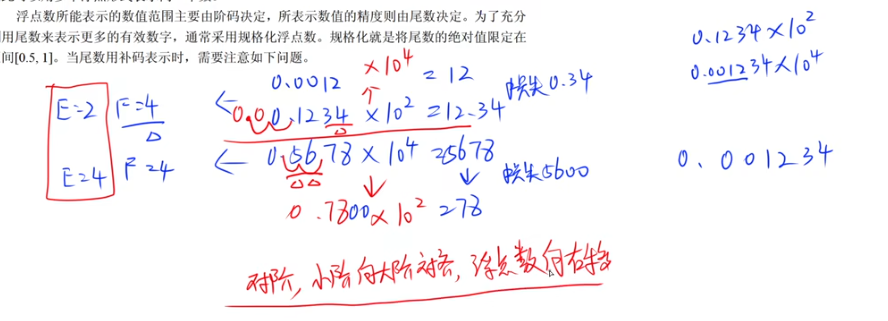 浮点数所能表示的数值范围主要由阶码决定，所表示数值的精度则由尾数决定。为了充分
用尾数来表示更多的有效数字，通常采用规格化浮点数。规格化就是将尾数的绝对值限定在
间[0.5, 1]。当尾数用补码表示时，需要注意如下问题。
0.1234×10²
0.001234×10⁴
0.0012 ×10⁴ = 12
损失0.34
E=2 F=4 ← 0.00.1234 ×10² =12.34
E=4 F=4 ← 0.5678×10⁴ =5678
0.001234
损失5600
0.7800×10² =78
对阶，小阶向大阶对齐，浮点数向右移